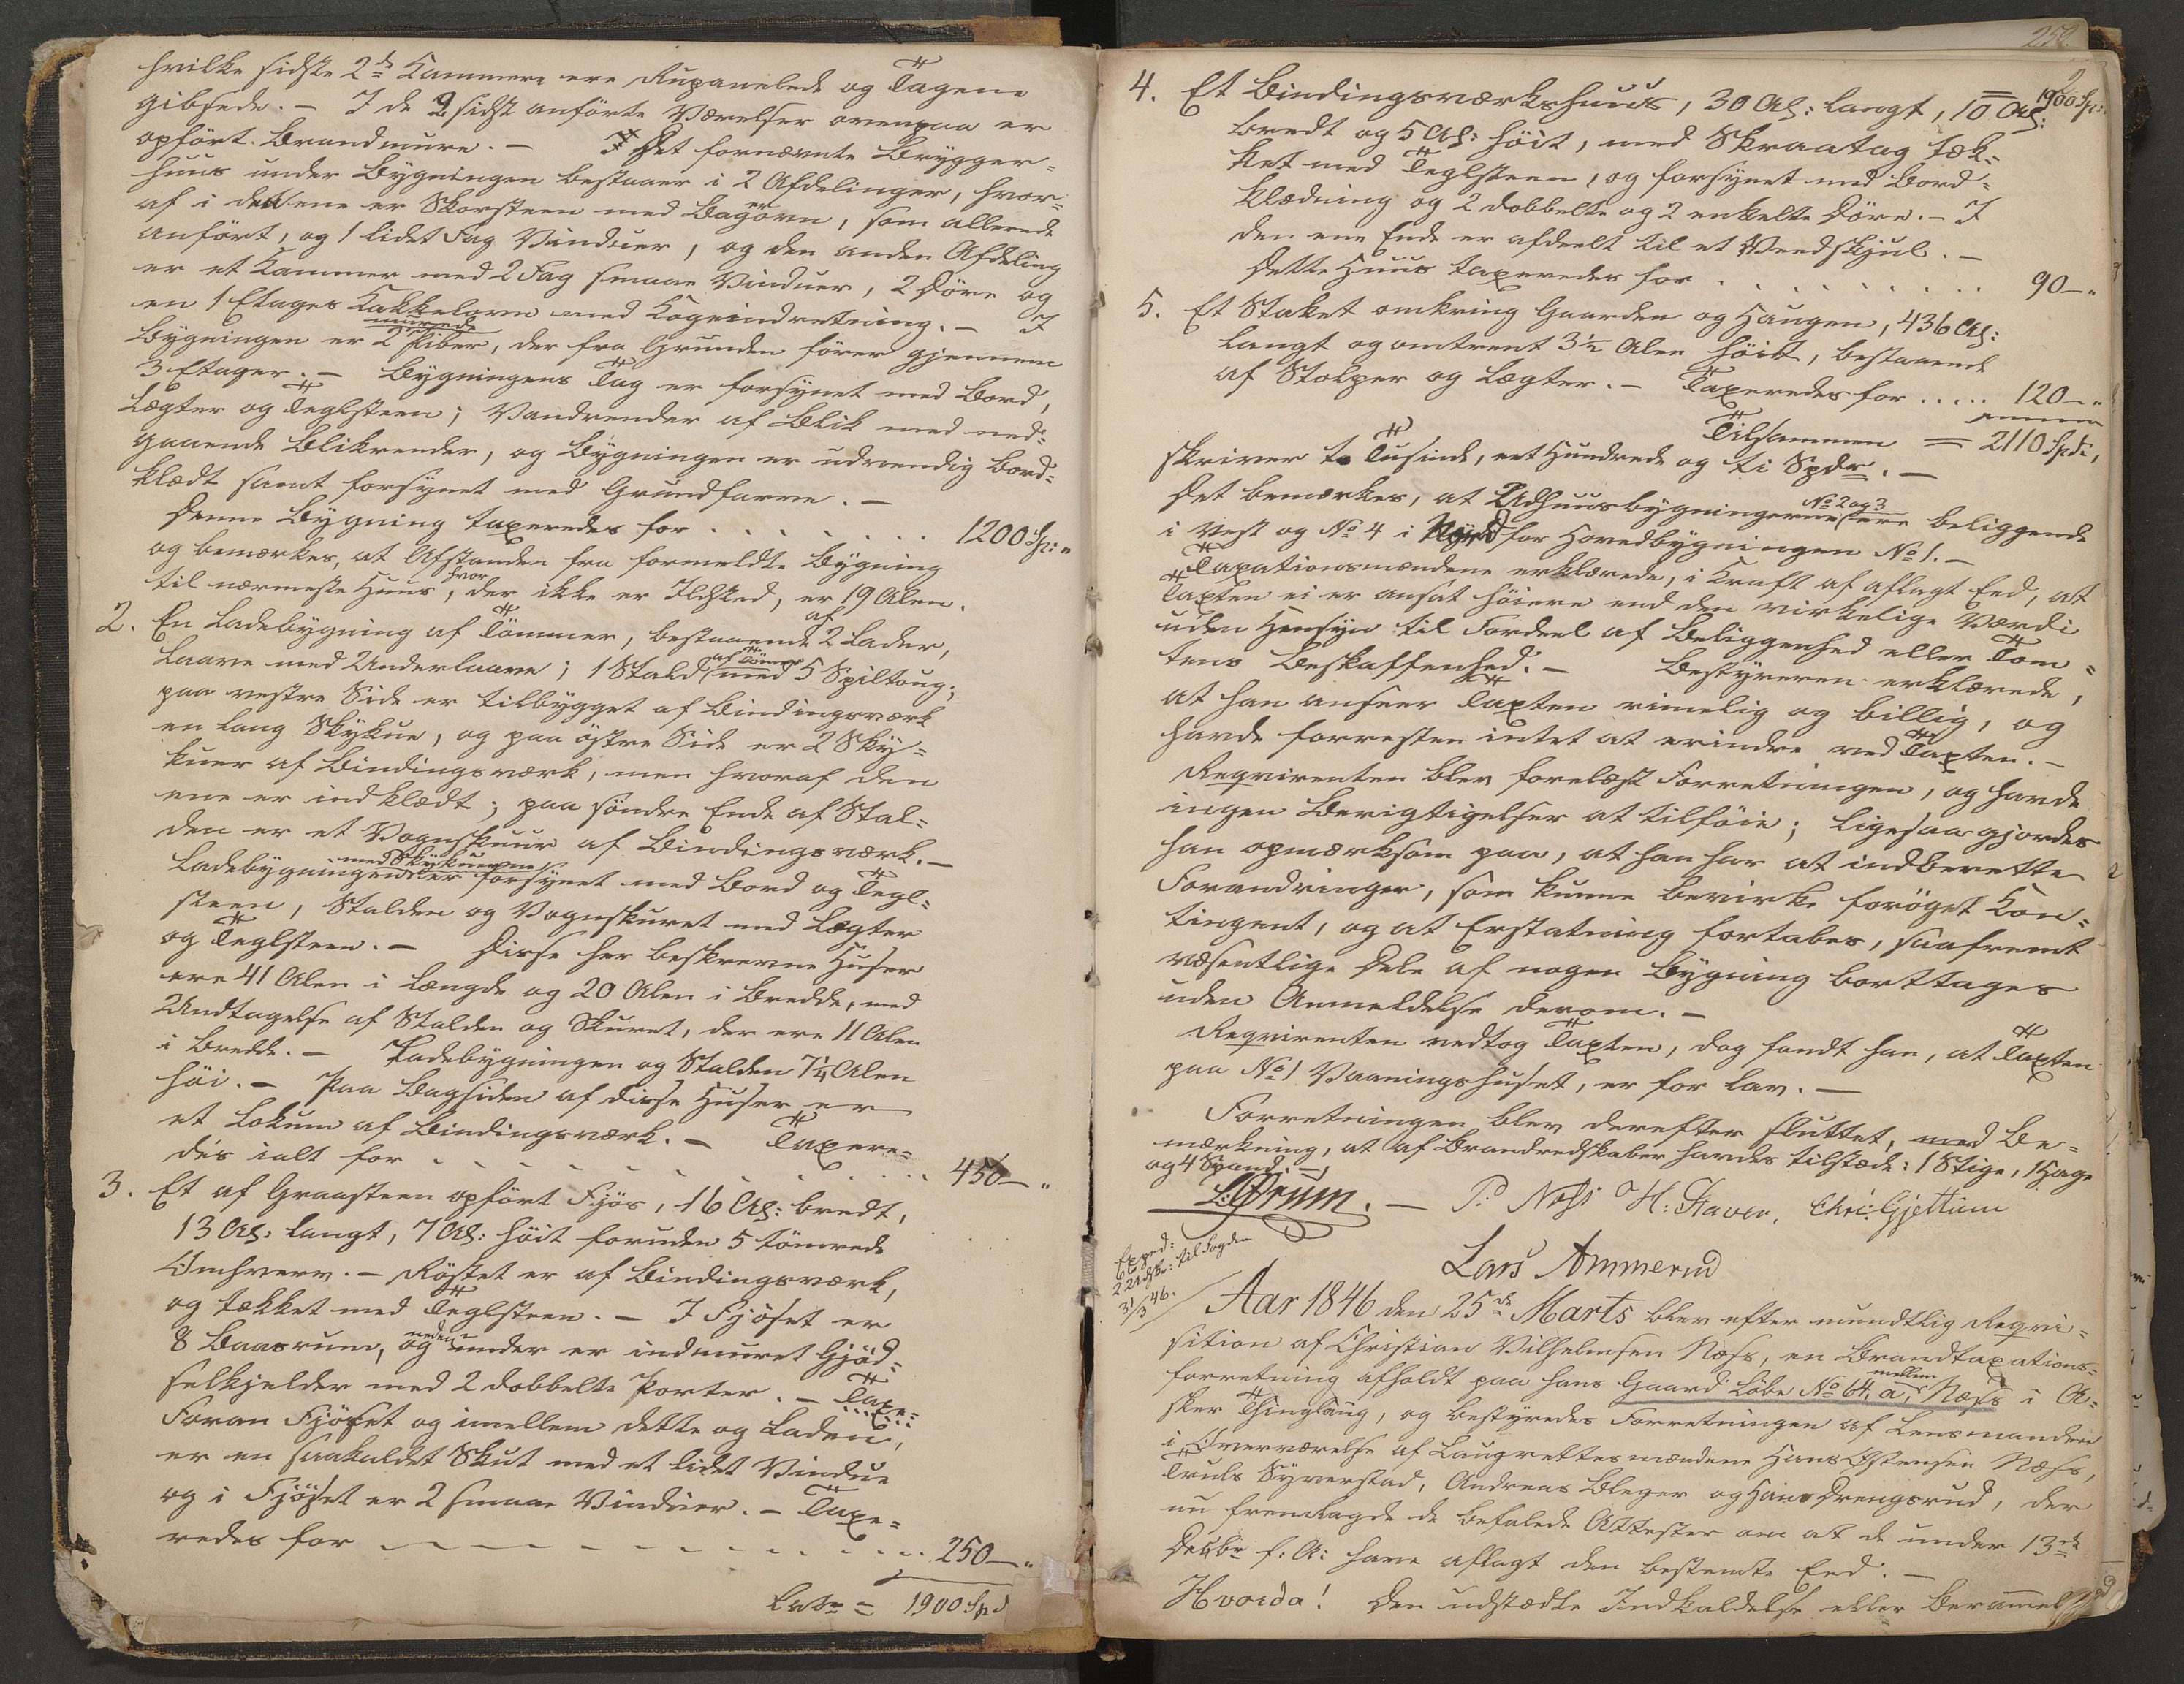 hvilke sidste 2de Kammere ere Rupanelede og Tagene
gibsede. – I de 2 sidst anførte Værelser ovenpaa er
opført Brandmure. – Det fornævnte Brygger-
huus under Bygningen bestaaer i 2 Afdelinger, hvor-
af i den ene er Skorsteen med Bagerovn, som allerede
anført, og 1 lidet Fag Vinduer, og den anden Afdeling
er et Kammer med 2 Fag smaae Vinduer, 2 Døre og
en 1 Etages Kakkelovn med Kogeindretning. – I
Bygningen er 2 murede Piber, der fra Grunden fører gjennem
3 Etager. – Bygningens Tag er forsynet med Bord,
Lægter og Teglsteen; Vandrender af Blik med ned-
gaaende Blikrender, og Bygningen er udvendig bord-
klædt samt forsynet med Grundfarve. –
Denne Bygning taxeredes for . . . . . . . 1200 Sp: "
og bemærkes, at Afstanden fra formeldte Bygning
til nærmeste Huus, hvor der ikke er Ildsted, er 19 Alen.
2. En Ladebygning af Tømmer, bestaaende af 2 Lader,
Laave med Underlaave; 1 Stald af Tømer med 5 Spiltoug;
paa vestre Side er tilbygget af Bindingsværk
en lang Skykue, og paa østre Side er 2 Sky-
kuer af Bindingsværk, men hvoraf den
ene er indklædt; paa søndre Ende af Stal-
den er et Vognskuur af Bindingsværk. –
Ladebygningen med Skykuerne er forsynet med Bord og Tegl-
steen, Stalden og Vognskuret med Lægter
og Teglsteen. – Disse her beskrevne Huse
ere 41 Alen i Længde og 20 Alen i Bredde, med
Undtagelse af Stalden og Skuret, der ere 11 Alen
i Bredde. – Ladebygningen og Stalden 7¼ Alen
høi. – Paa Bagsiden af disse Huse er
et Lokum af Bindingsværk. – Taxere-
des ialt for . . . . . . . . . 450 – "
3. Et af Graasteen opført Fjøs, 16 Al: bredt,
13 Al: langt, 7 Al: høit foruden 5 tømrede
Omhverv. – Røstet er af Bindingsværk,
og tækket med Teglsteen. – I Fjøset er
8 Baasrum, og nedenunder er indmuret Gjød-
selkjelder med 2 dobbelte Porter. – Taxe-
Foran Fjøset og imellem dette og Laden,
er en saakaldet Skut med et lidet Vindue
og i Fjøset er 2 smaae Vinduer. – Taxe-
redes for . . . . . . . . . 250 – "
Lats = 1900 Spd
250.
1900 Sp:
4. Et Bindingsværkshuus, 30 Al: langt, 10 Al:
bredt og 5 Al: høit, med Skraatag tæk-
ket med Teglsteen, og forsynet med Bord-
klædning og 2 dobbelte og 2 enkelte Døre. – I
den ene Ende er afdeelt til et Veedskjul. –
Dette Huus taxeredes for . . . . . . . . 90 – "
5. Et Staket omkring Gaarden og Haugen, 436 Al:
langt og omtrent 3½ Alen høit, bestaaende
af Stolper og Lægter. – Taxeredes for . . . . 120 – "
Tilsammen = 2110 Spd.,
skriver to Tusinde, eet Hundrede og ti Spdr. –
Det bemærkes, at Udhuusbygningerne No 2 og 3 ere beliggende
i Vest og No 4 i Nord for Hovedbygningen No 1. –
Taxationsmændene erklærede, i Kraft af aflagt Eed, at
Taxten ei er ansat høiere end den virkelige Værdi
uden Hensyn til Fordeel af Beliggenhed eller Tom-
tens Beskaffenhed. – Bestyreren erklærede,
at han anseer Taxten rimelig og billig, og
havde forresten intet at erindre ved Taxten. –
Reqvirenten blev forelæst Forretningen, og havde
ingen Berigtigelser at tilføie; ligesaa gjordes
han opmærksom paa, at han har at indberette
Forandringer, som kunne bevirke forøget Kon-
tingent, og at Erstatning fortabes, saafremt
væsentlige Dele af nogen Bygning borttages
uden Anmeldelse derom. –
Reqvirenten vedtog Taxten, dog fandt han, at Taxten
paa No 1 Vaaningshuset, er for lav. –
Forretningen blev derefter sluttet, med Be-
mærkning, at af Brandredskaber havdes tilstæde: 1 Stige, 1 Hage
og 4 Spand. –
P. Næss H: Staver. Chri: Gjettum
Lars Ammerud
Exped:
2 Udskr: til Fogden
31/3 46.
Aar 1846 den 25de Marts blev efter mundtlig Reqvi-
sition af Christian Vilhelmsen Næss, en Brandtaxations-
forretning afholdt paa hans Gaard Løbe No 64, a, mellem Næss i A-
sker Thinglaug, og bestyredes Forretningen af Lensmanden
i Overværelse af Laugrettesmændene Hans Ostensen Næss,
Truls Syverstad, Andreas Bleger og Hans Drengsrud, der
nu fremlagde de befalede Attester om at de under 13de
Decbr f: A: have aflagt den bestemte Eed. –
Hvorda! Den udstædte Indkaldelse eller Berammel